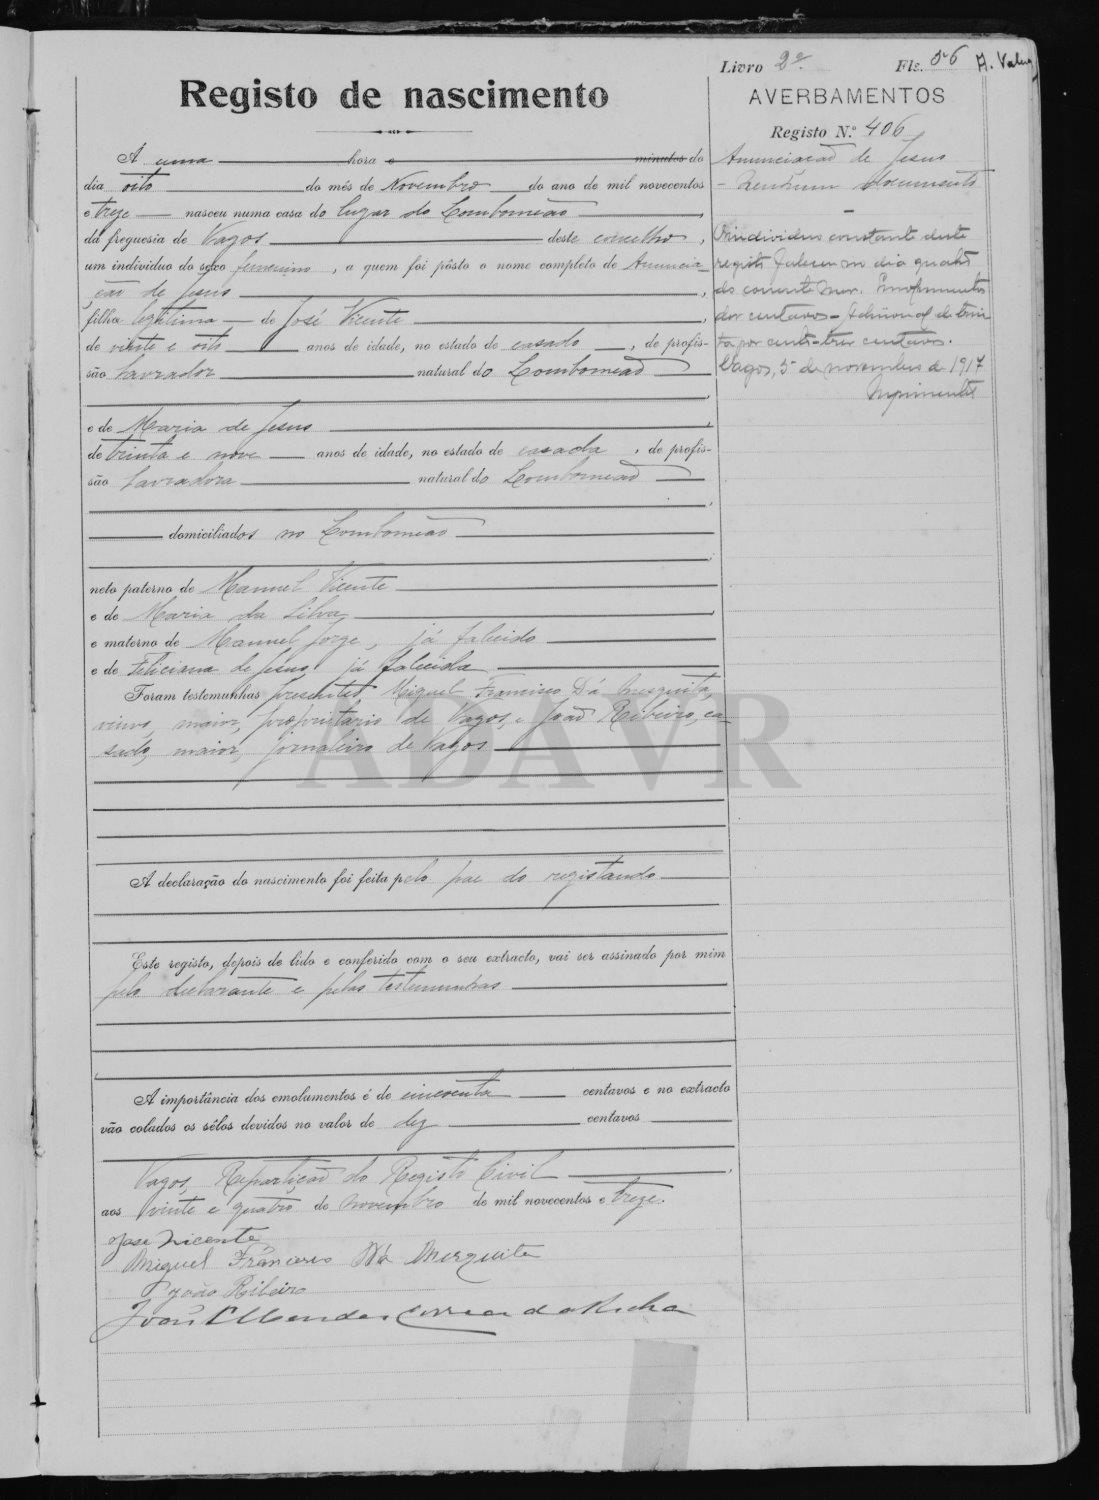 Livro 2º Fls. 56
Registo de nascimento
AVERBAMENTOS
Registo N.º 406
Á uma hora e minutos do
dia oito do mês de Novembro do ano de mil novecentos
e treze nasceu numa casa do lugar do Lombomeão,
da freguesia de Vagos deste concelho,
um individuo do sexo feminino, a quem foi pôsto o nome completo de Anuncia-
ção de Jesus,
filha legitima de José Vicente,
de vinte e oito anos de idade, no estado de casado, de profis-
são lavrador natural do Lombomeão
e de Maria de Jesus,
de trinta e nove anos de idade, no estado de casada, de profis-
são lavradora natural do Lombomeão
domiciliados no Lombomeão
neto paterno de Manuel Vicente
e de Maria da Silva,
e materno de Manuel Jorge, já falecido
e de Feliciana de Jesus já falecida
Foram testemunhas presentes, Miguel Francisco Dá Mesquita,
viuvo, maior, proprietario de Vagos, e João Ribeiro, ca-
sado, maior, jornaleiro de Vagos
ADAVR
A declaração do nascimento foi feita pelo pae do registando
Este registo, depois de lido e conferido com o seu extracto, vai ser assinado por mim
pelo declarante e pelas testemunhas
A importância dos emolumentos é de cincoenta centavos e no extracto
vão colados os sêlos devidos no valor de dez centavos
Vagos, Repartição do Registo Civil,
aos vinte e quatro de novembro de mil novecentos e treze.
Jose Vicente
Miguel Francisco Dá Mesquita
João Ribeiro
João Mendes Correia da Rocha
Anunciação de Jesus
- Nenhum documento
O individuo constante deste
registo faleceu no dia quatro
do corrente mez. Emolumentos
dez centavos - Adicional de trin-
ta por cento-tres centavos.
Vagos, 5 de novembro de 1917